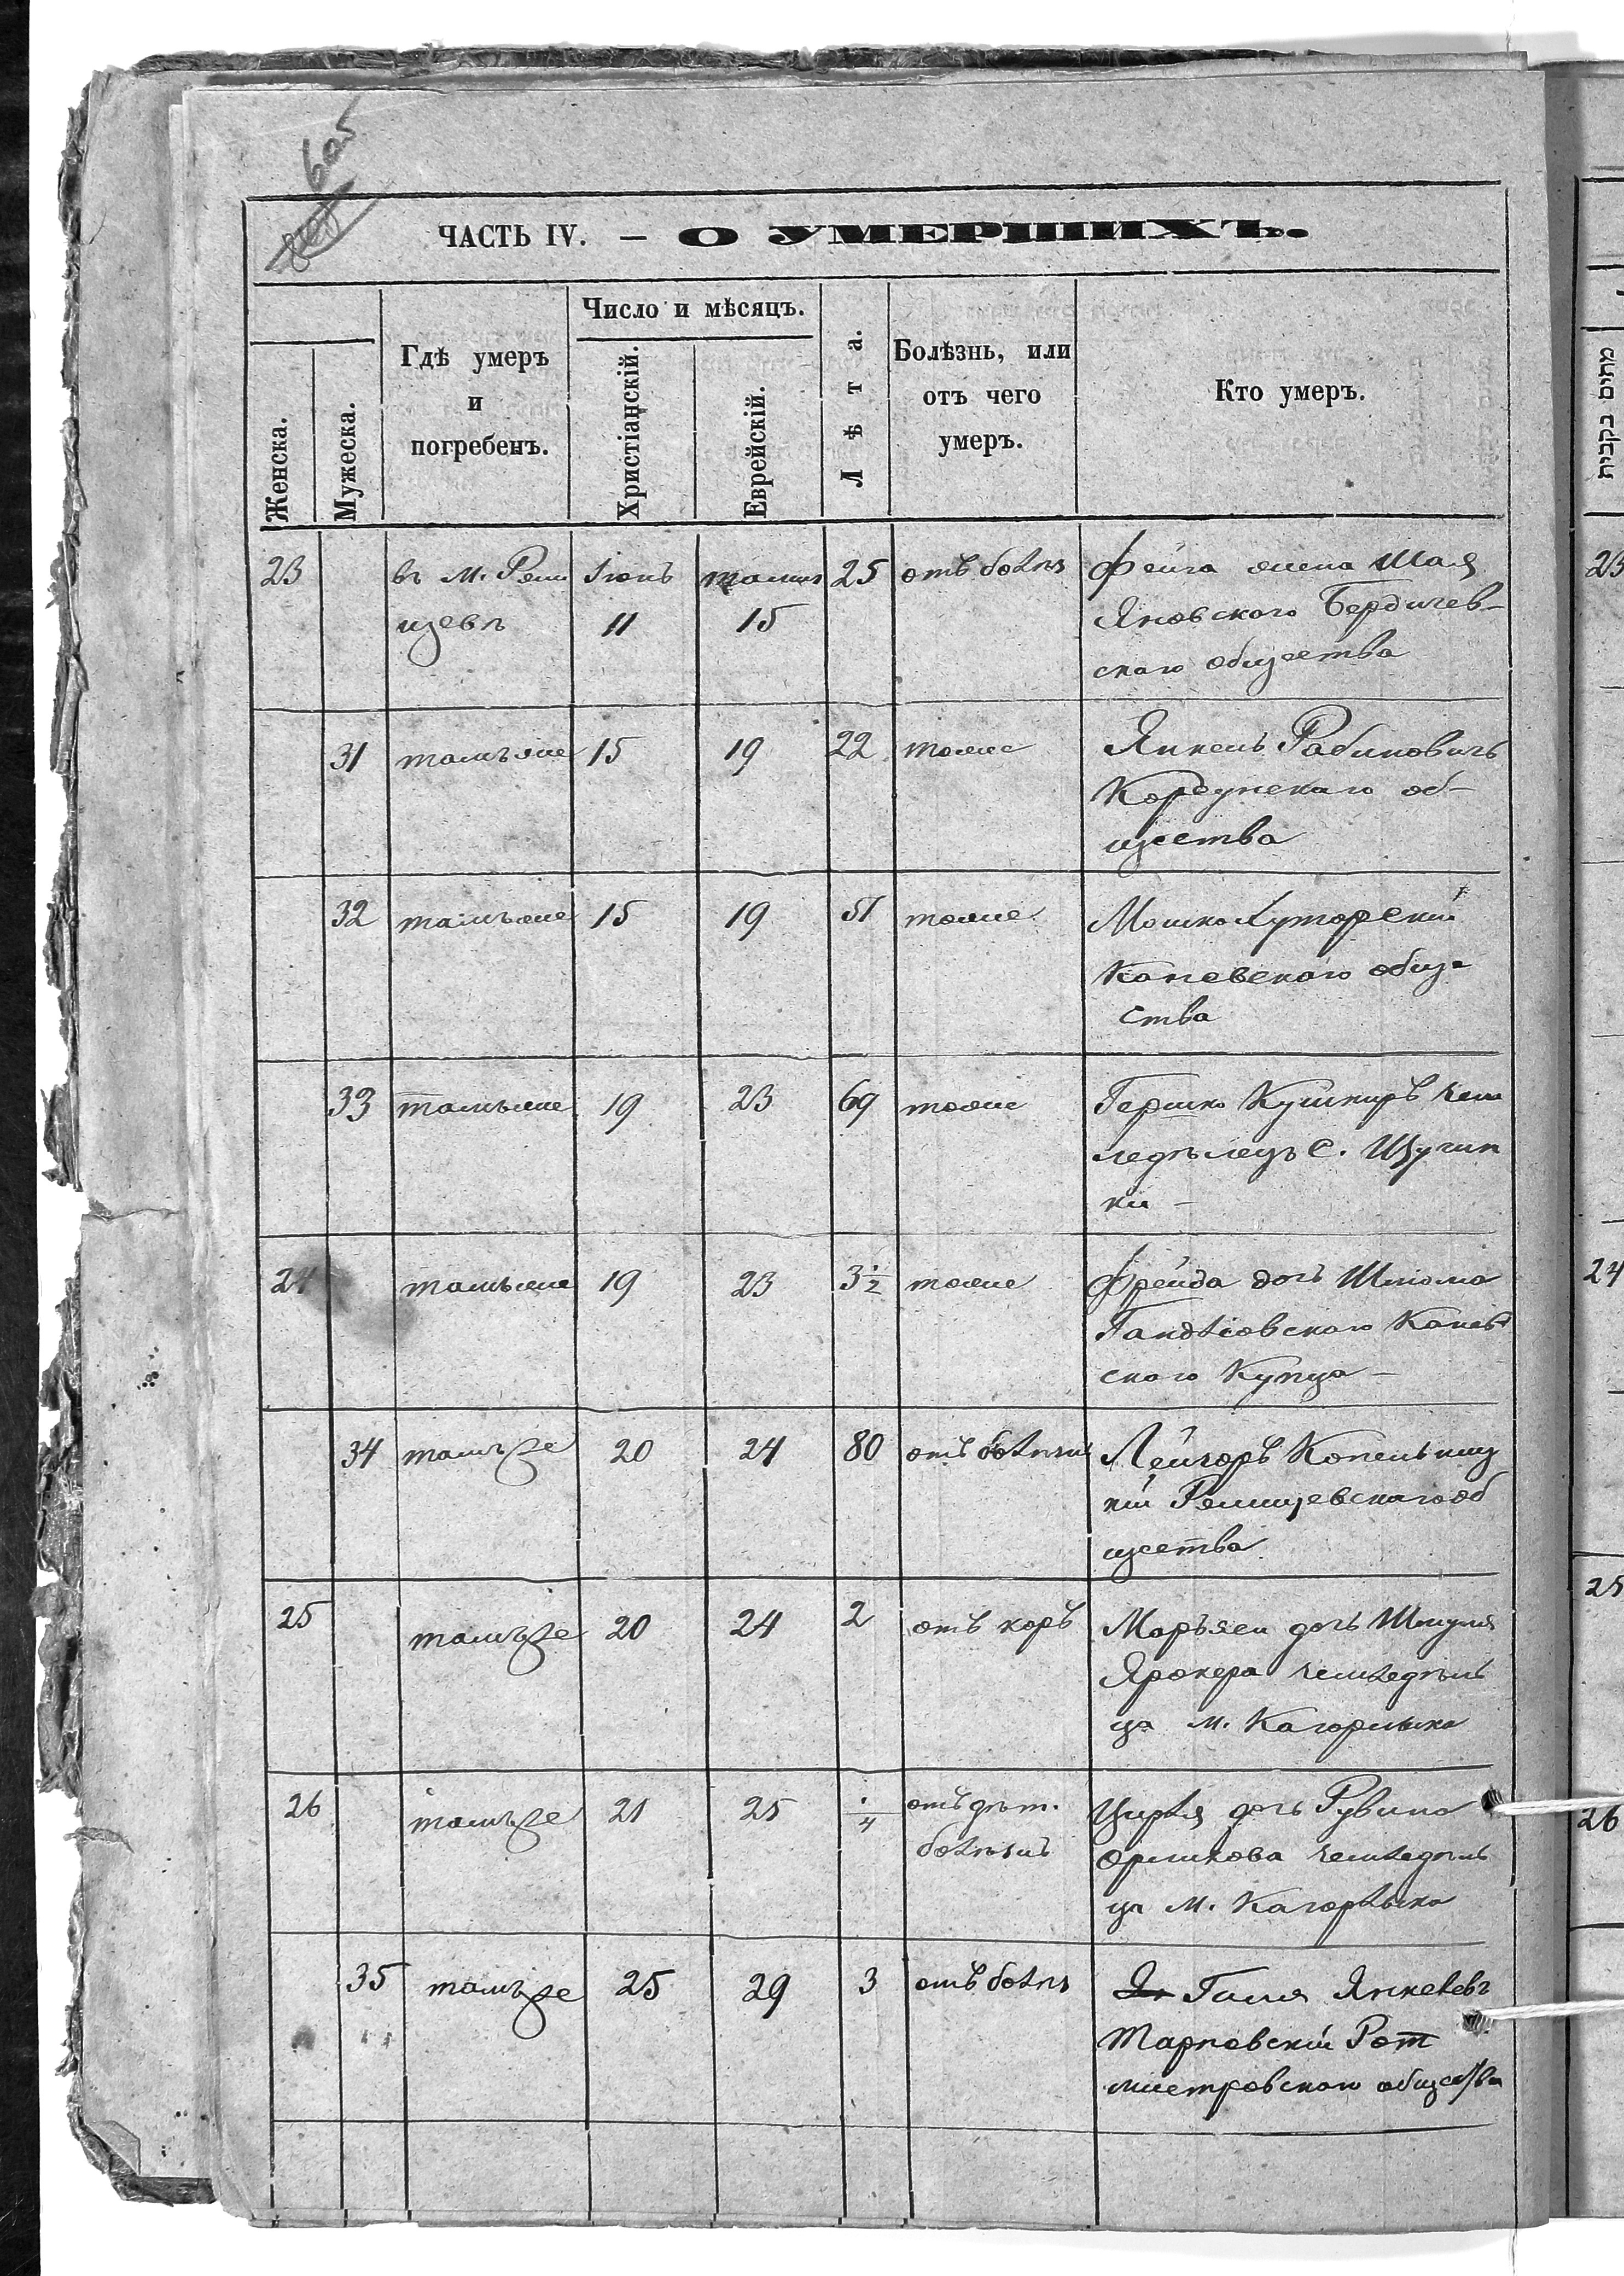 605
ЧАСТЬ IV. — О УМЕРШИХЪ.
Женска.
Мужеска.
Гдѣ умеръ
и
погребенъ.
Число и мѣсяцъ.
Христіанскій.
Еврейскій.
Лѣта.
Болѣзнь, или
отъ чего
умеръ.
Кто умеръ.
23 въ м. Ржи Іюнь тамуз 25 отъ болѣз Фейга жена Шая
щевѣ 11 15 Яновского Бердичев-
скаго общества
31 тамъ же 15 19 22 тоже Янкель Рабиновичъ
Корсунскаго об-
щества
32 тамъ же 15 19 51 тоже Мошко Хуторскій
Каневскаго обще
ства
33 тамъ же 19 23 69 тоже Гершко Кушниръ земле
ледѣлецъ с. Щучин
ки —
24 тамъ же 19 23 3 1/2 тоже Фрейда дочь Шлиома
Канев
ского Купца —
34 тамъ же 20 24 80 отъ болѣзни Лейзоръ
кій Ржищевскаго об
щества
25 тамъ же 20 24 2 отъ коръ Марьяси дочь Шмуля
земледѣль
ца м. Кагорлыка
26 тамъ же 21 25 1/4 отъ дѣт. Цирля дочь Рувина
болѣзнь земледѣль
ца м. Кагорлыка
35 тамъ же 25 29 3 отъ болѣз Янкелевъ
Тарновскій Рот
мистровского общества
מתים בקבית
23
24
25
26